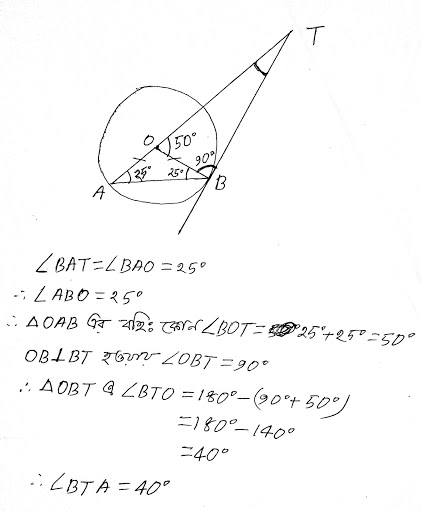 T
O 50°
90°
A 25° 25° B
∠BAT=∠BAO=25°
∴ ∠ABO=25°
∴ △OAB এর বহিঃ কোন ∠BOT= 25°+25°=50°
OB⊥BT হওয়ায় ∠OBT=90°
∴ △OBT এ ∠BTO=180°-(90°+50°)
=180°-140°
=40°
∴ ∠BTA=40°